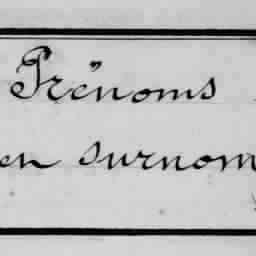 Prénoms
en surnom